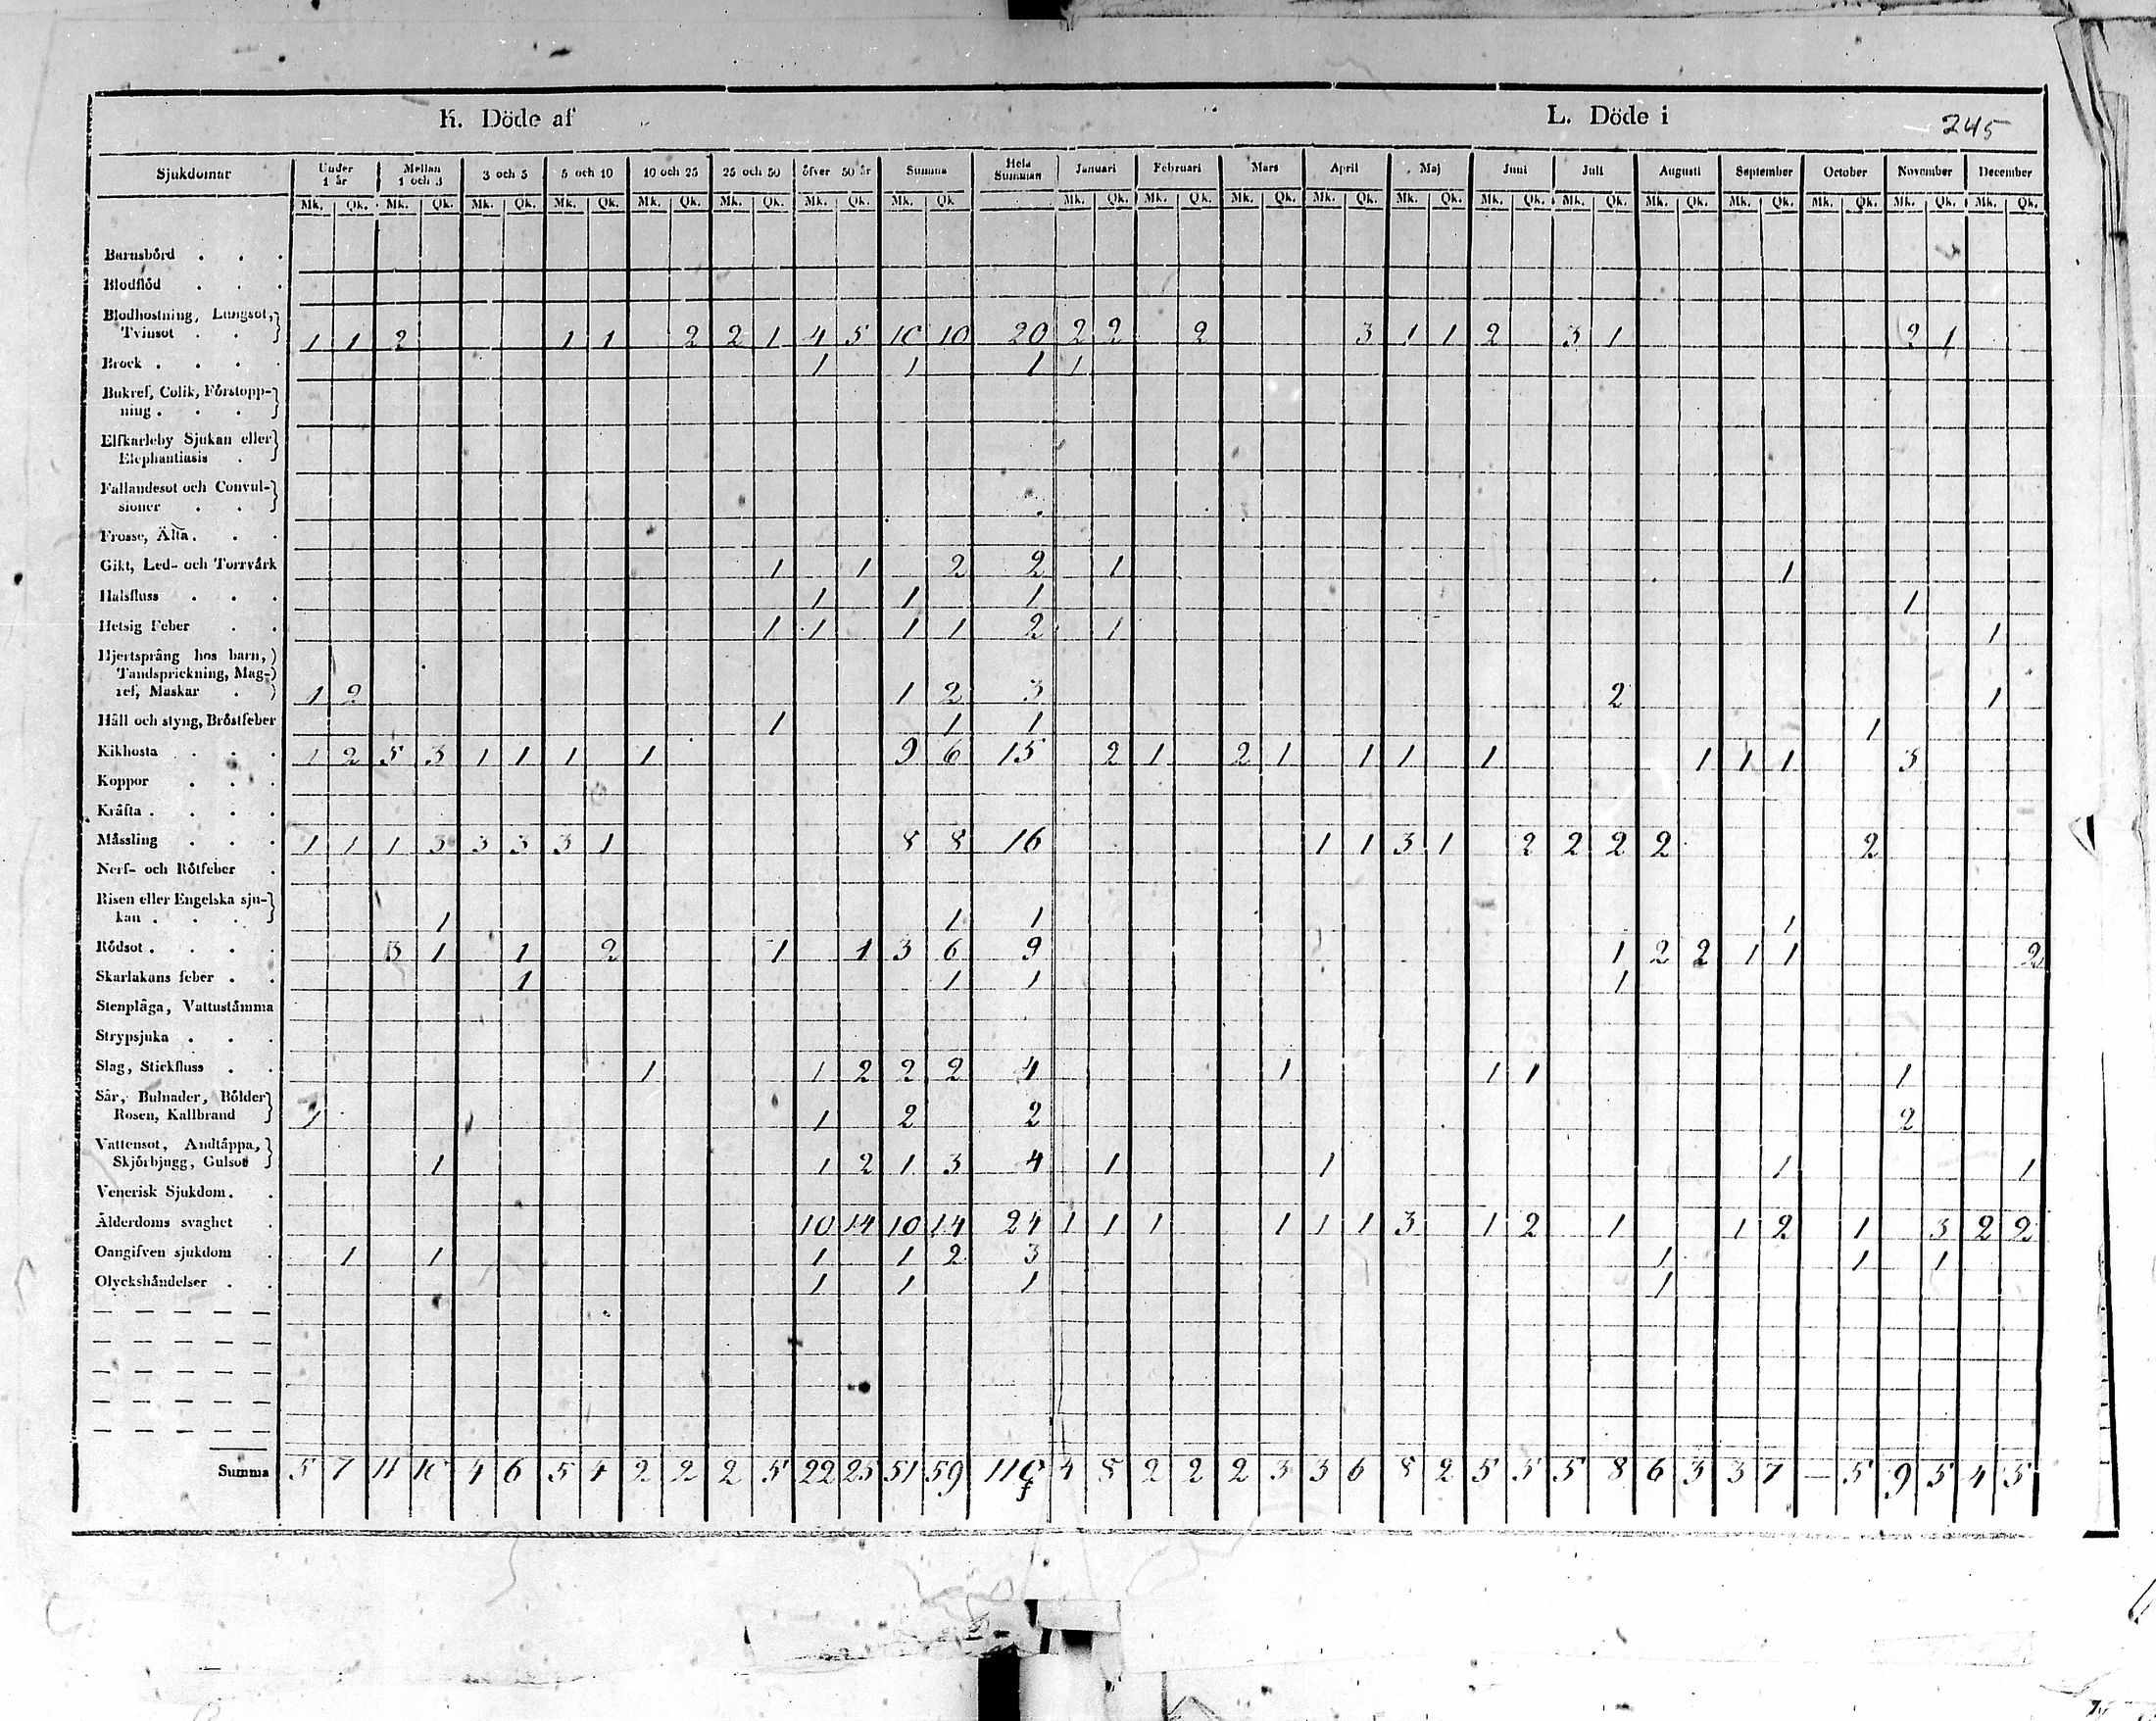 K. Döde af L. Döde i 245
Sjukdomar Under 1 år Mellan 1 och 3 3 och 5 5 och 10 10 och 25 25 och 50 öfver 50 år Summa Hela Summan Januari Februari Mars April Maj Juni Juli Augusti September October November December
Mk. Qk. Mk. Qk. Mk. Qk. Mk. Qk. Mk. Qk. Mk. Qk. Mk. Qk. Mk. Qk. Mk. Qk. Mk. Qk. Mk. Qk. Mk. Qk. Mk. Qk. Mk. Qk. Mk. Qk. Mk. Qk. Mk. Qk. Mk. Qk. Mk. Qk. Mk. Qk.
Barnsbörd . . .
Blodflöd . . .
Blodhostning, Lungsot,
Tvinsot . . 1 1 2 1 1 2 2 1 4 5 10 10 20 2 2 2 3 1 1 2 3 1 2 1
Brock . . . . 1 1 1 1
Bukref, Colik, Förstopp-
ning . . .
Elfkarleby Sjukan eller
Elephantiasis .
Fallandesot och Convul-
sioner . .
Frosse, Älta . . .
Gikt, Led- och Torrvärk 1 1 2 2 1 1
Halsfluss . . . 1 1 1 1
Hetsig Feber . . 1 1 1 1 2 1 1
Hjertsprång hos barn,
Tandsprickning, Mag-
ref, Maskar . 1 2 1 2 3 2 1
Håll och styng, Bröstfeber 1 1 1 1
Kikhosta . . . 1 2 5 3 1 1 1 1 9 6 15 2 1 2 1 1 1 1 1 1 1 3
Koppor . . .
Kräfta . . . .
Mässling . . . 1 1 1 3 3 3 3 1 8 8 16 1 1 3 1 2 2 2 2 2
Nerf- och Rötfeber .
Risen eller Engelska sju-
kan . . . 1 1 1 1
Rödsot . . . . 3 1 1 2 1 1 3 6 9 1 2 2 1 1 2
Skarlakans feber . . 1 1 1 1
Stenplåga, Vattustämma
Strypsjuka . . .
Slag, Stickfluss . . 1 1 2 2 2 4 1 1 1 1
Sår, Bulnader, Bölder
Rosen, Kallbrand 1 1 2 2 2
Vattensot, Andtäppa,
Skjörbjugg, Gulsot 1 1 2 1 3 4 1 1 1 1
Venerisk Sjukdom . .
Ålderdoms svaghet . 10 14 10 14 24 1 1 1 1 1 1 3 1 2 1 1 2 1 3 2 2
Oangifven sjukdom . 1 1 1 1 2 3 1 1 1
Olyckshändelser . . 1 1 1 1
Summa 5 7 11 10 4 6 5 4 2 2 2 5 22 25 51 59 110 4 8 2 2 2 3 3 6 8 2 5 5 5 8 6 3 3 7 — 5 9 5 4 5